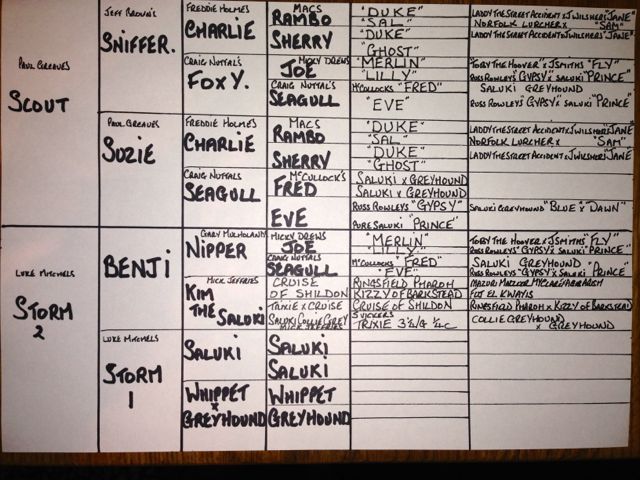 PAUL GREAVES
SCOUT
LUKE MITCHELS
STORM
2
JEFF BROWN'S
SNIFFER.
PAUL GREAVES
SUZIE
BENJI
LUKE MITCHELS
STORM
1
FREDDIE HOLMES
CHARLIE
CRAIG NUTTALS
FOXY.
FREDDIE HOLMES
CHARLIE
CRAIG NUTTALS
SEAGULL
GARY MULHOLAND
NIPPER
MICK JEFFRIES
KIM
THE SALUKI
SALUKI
WHIPPET
x
GREYHOUND
MACS
RAMBO
SHERRY
MICKY DREWS
JOE
CRAIG NUTTAL'S
SEAGULL
MACS
RAMBO
SHERRY
McCULLOCK'S
FRED
EVE
MICKY DREWS
JOE
CRAIG NUTTALS
SEAGULL
CRUISE
OF SHILDON
TRIXIE x CRUISE
SALUKI COLLIE GREY
MICK JEFFRIES
SALUKI
SALUKI
WHIPPET
GREYHOUND
"DUKE"
"SAL"
"DUKE"
"GHOST"
"MERLIN"
"LILLY"
McCullocks "FRED"
"EVE"
"DUKE"
"SAL"
"DUKE"
"GHOST"
SALUKI x GREYHOUND
SALUKI x GREYHOUND
RUSS ROWLEYS "GYPSY"
PURE SALUKI "PRINCE"
"MERLIN"
"LILLY"
McCullocks "FRED"
"EVE"
RINGSFIELD PHAROH
KIZZY OF BARKSTEAD
CRUISE OF SHILDON
TRIXIE 3/4/G 1/4C
LADDY THE STREET ACCIDENT x J WILSHERS "JANE"
NORFOLK LURCHER x "SAM"
LADDY THE STREET ACCIDENT x J WILSHERS "JANE"
"TOBY THE HOOVER" x J SMITHS "FLY"
RUSS ROWLEYS "GYPSY" x SALUKI "PRINCE"
SALUKI GREYHOUND
RUSS ROWLEY'S "GYPSY" x SALUKI "PRINCE"
LADDY THE STREET ACCIDENT x J WILSHERS "JANE"
NORFOLK LURCHER x "SAM"
LADDY THE STREET ACCIDENT x J WILSHERS "JANE"
SALUKI GREYHOUND "BLUE" x "DAWN"
TOBY THE HOOVER x J SMITHS "FLY"
RUSS ROWLEY'S "GYPSY" x SALUKI "PRINCE"
SALUKI GREYHOUND "A"
RUSS ROWLEYS "GYPSY" x SALUKI "PRINCE"
FLT EL KWAYIS
RINGSFIELD PHAROH x KIZZY OF BARKSTEAD
COLLIE GREYHOUND
x GREYHOUND